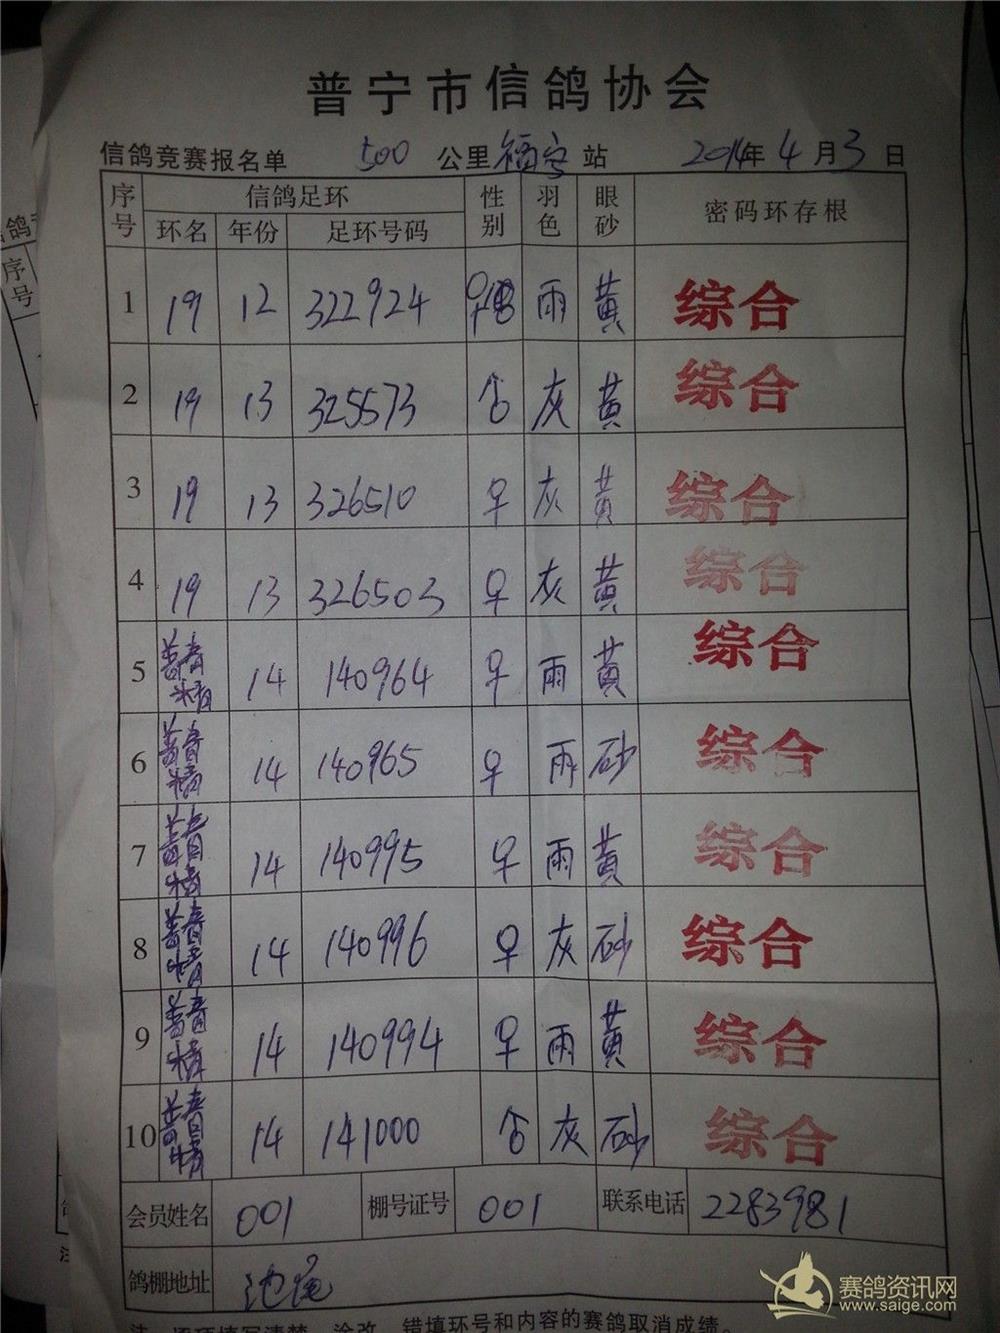 普宁市信鸽协会
信鸽竞赛报名单 500 公里 福安 站 2014年 4 月 3 日
序号 信鸽足环 性别 羽色 眼砂 密码环存根
环名 年份 足环号码
1 19 12 322924 ♀ 雨 黄 综合
2 19 13 325573 灰 黄 综合
3 19 13 326510 ♀ 灰 黄 综合
4 19 13 326503 ♀ 灰 黄 综合
5 14 140964 ♀ 雨 黄 综合
6 14 140965 ♀ 雨 砂 综合
7 14 140995 ♀ 雨 黄 综合
8 14 140996 ♀ 灰 砂 综合
9 14 140994 ♀ 雨 黄 综合
10 14 141000 灰 砂 综合
会员姓名 001 棚号证号 001 联系电话 2283981
鸽棚地址 池尾
错填环号和内容的赛鸽取消成绩。
赛鸽资讯网
www.saige.com